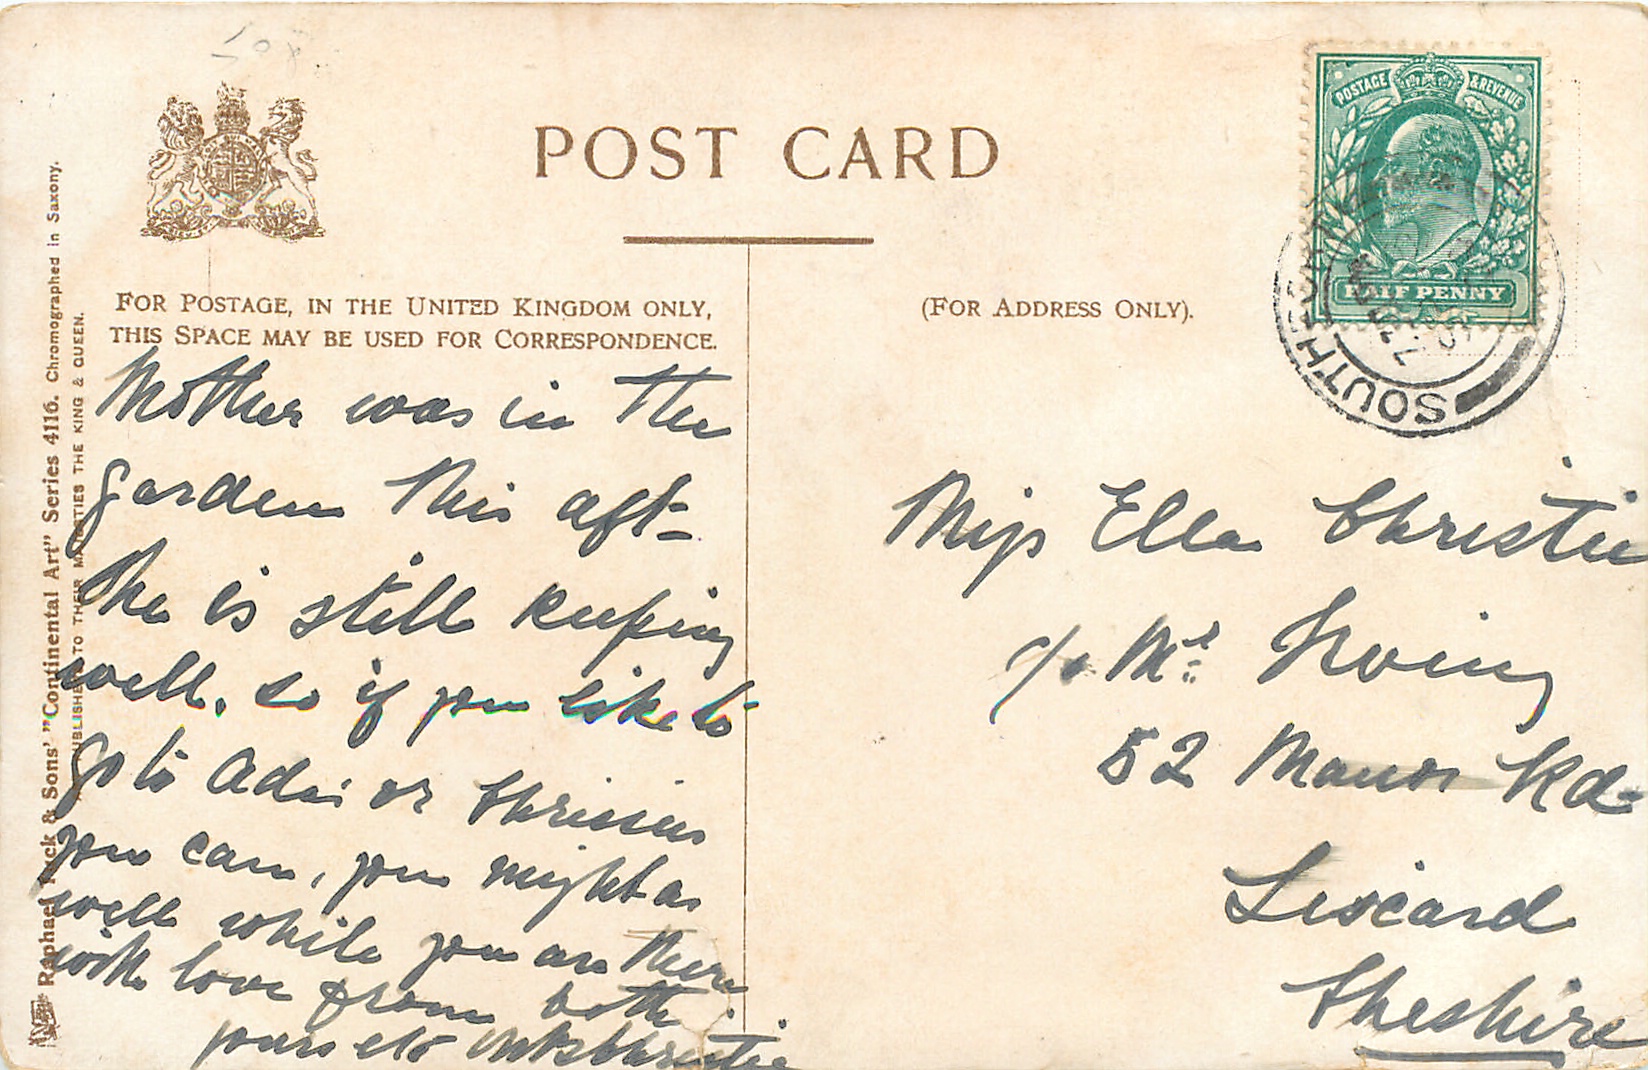 POST CARD
FOR POSTAGE, IN THE UNITED KINGDOM ONLY,
THIS SPACE MAY BE USED FOR CORRESPONDENCE.
(FOR ADDRESS ONLY).
POSTAGE & REVENUE
HALF PENNY
SOUTH
Mother was in the
garden this aft-
She is still keeping
well, so if you like to
go to Ada's or
you can, you might as
well while you are there
with love from both
yours etc Christie
Miss Ella Christie
c/o Mrs Irving
52 Manor Rd-
Liscard
Cheshire
Raphael Tuck & Sons' "Continental Art" Series 4116. Chromographed in Saxony.
PUBLISHERS TO THEIR MAJESTIES THE KING & QUEEN.